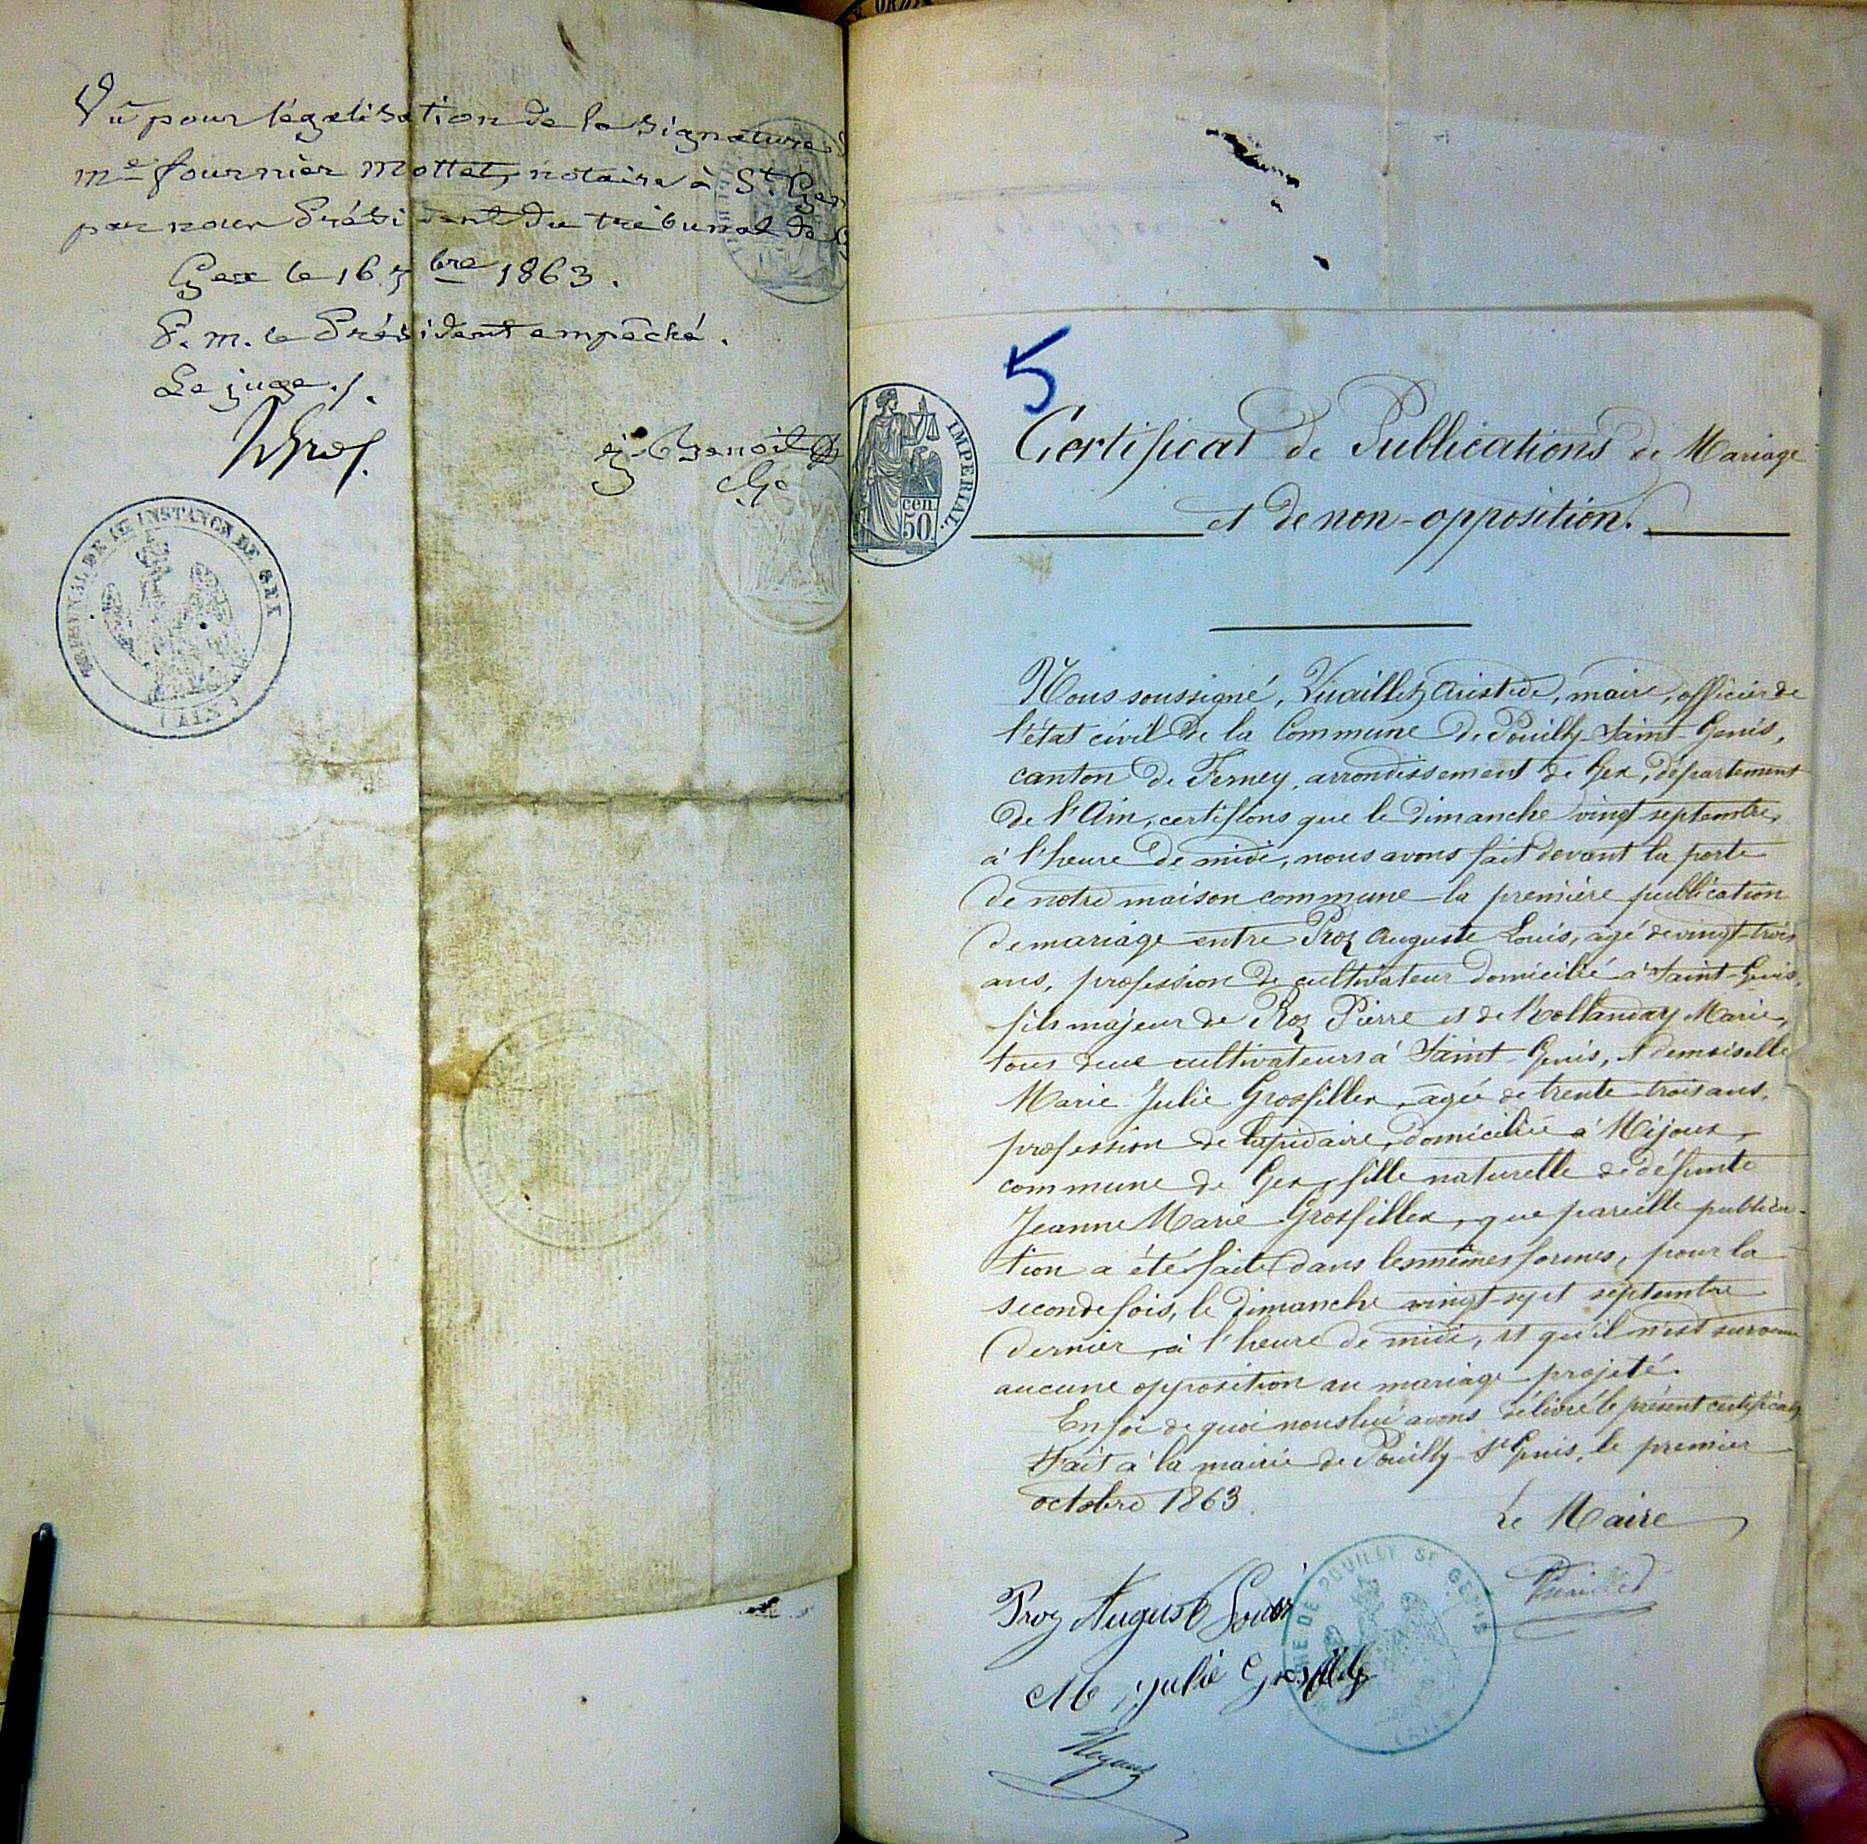 Vu pour légalisation de la signature d
Me fournier Mottet, notaire à St. Gen
par nous Président du tribunal de G
Gex le 16 7bre 1863.
P. m. le Président empêché.
Le juge./.
TRIBUNAL DE 1RE INSTANCE DE GEX
(AIN)
5
IMPERIAL.
cen.
50
Certificat de Publications de Mariage
et de non-opposition.
Nous soussigné, Vuaillet Aristide, maire, officier de
l'état civil de la Commune de Pouilly-Saint-Genis,
canton de Ferney, arrondissement de Gex, département
de l'Ain, certifions que le dimanche vingt septembre,
à l'heure de midi, nous avons fait devant la porte
de notre maison commune la première publication
de mariage entre Proz Auguste Louis, agé de vingt-trois
ans, profession de cultivateur domicilié à Saint-Genis,
fils majeur de Roz Pierre et de Mollanday Marie,
tous deux cultivateurs à Saint-Genis, et demoiselle
Marie Julie Grosfillex, agée de trente-trois ans,
profession de lapidaire, domiciliée à Mijoux,
commune de Gex, fille naturelle de défunte
Jeanne Marie Grosfillex, que pareille publica-
tion a été faite dans les mêmes formes, pour la
seconde fois, le dimanche vingt-sept septembre
dernier, à l'heure de midi, et qu'il n'est survenu
aucune opposition au mariage projeté.
En foi de quoi nous lui avons délivré le présent certificat
Fait à la mairie de Pouilly-St Genis, le premier
octobre 1863.
Le Maire
Vuaillet
Proz August Louis
M Julie Grosfillex
MAIRIE DE POUILLY ST GENIS
(AIN)